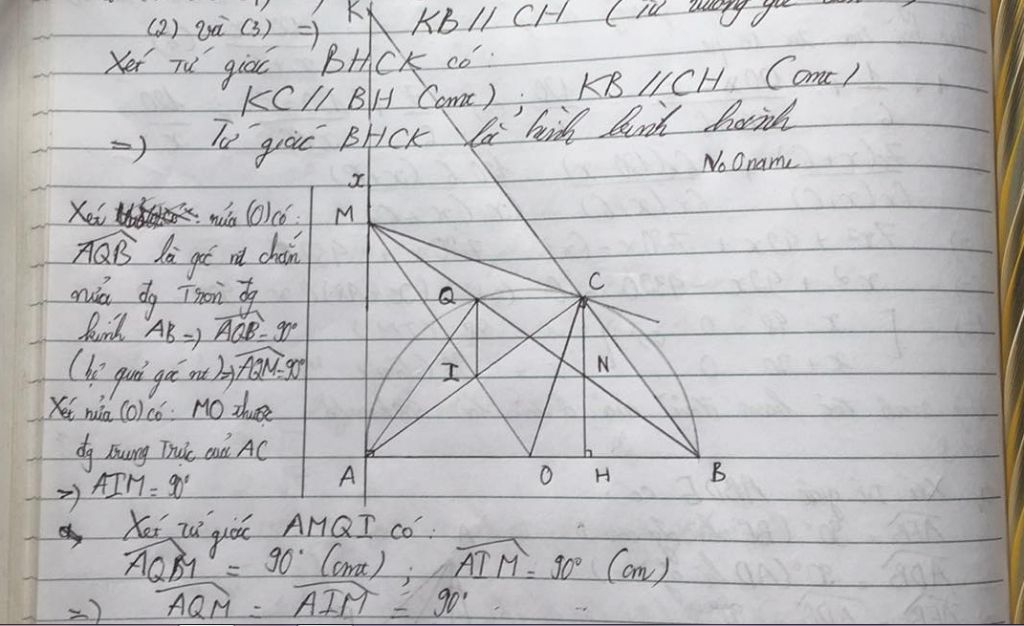 (2) và (3) =)
KB // CH (Từ vuông góc
Xét Tứ giác BHCK có:
KC // BH (cmt); KB // CH (cmt)
=) Tứ giác BHCK là hình bình hành
No Oname
Xét nửa (O) có:
AQB là góc nt chắn
nửa đg Tròn đg
kính AB =) AQB = 90°
(hệ quả góc nt) =) AQM = 90°
Xét nửa (O) có: MO thuộc
đg trung Trực của AC
=) AIM = 90°
K
x
M
Q
C
I
N
A
O
H
B
Xét tứ giác AMQI có:
AQM = 90° (cmt); AIM = 90° (cm)
=) AQM = AIM = 90°